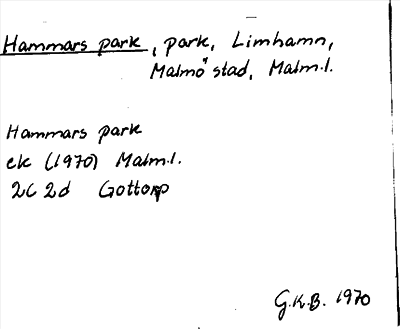 Hammars park, park, Limhamn,
Malmö stad, Malm.l.
Hammars park
ek (1970) Malm.l.
2C 2d Gottorp
G.K.B. 1970